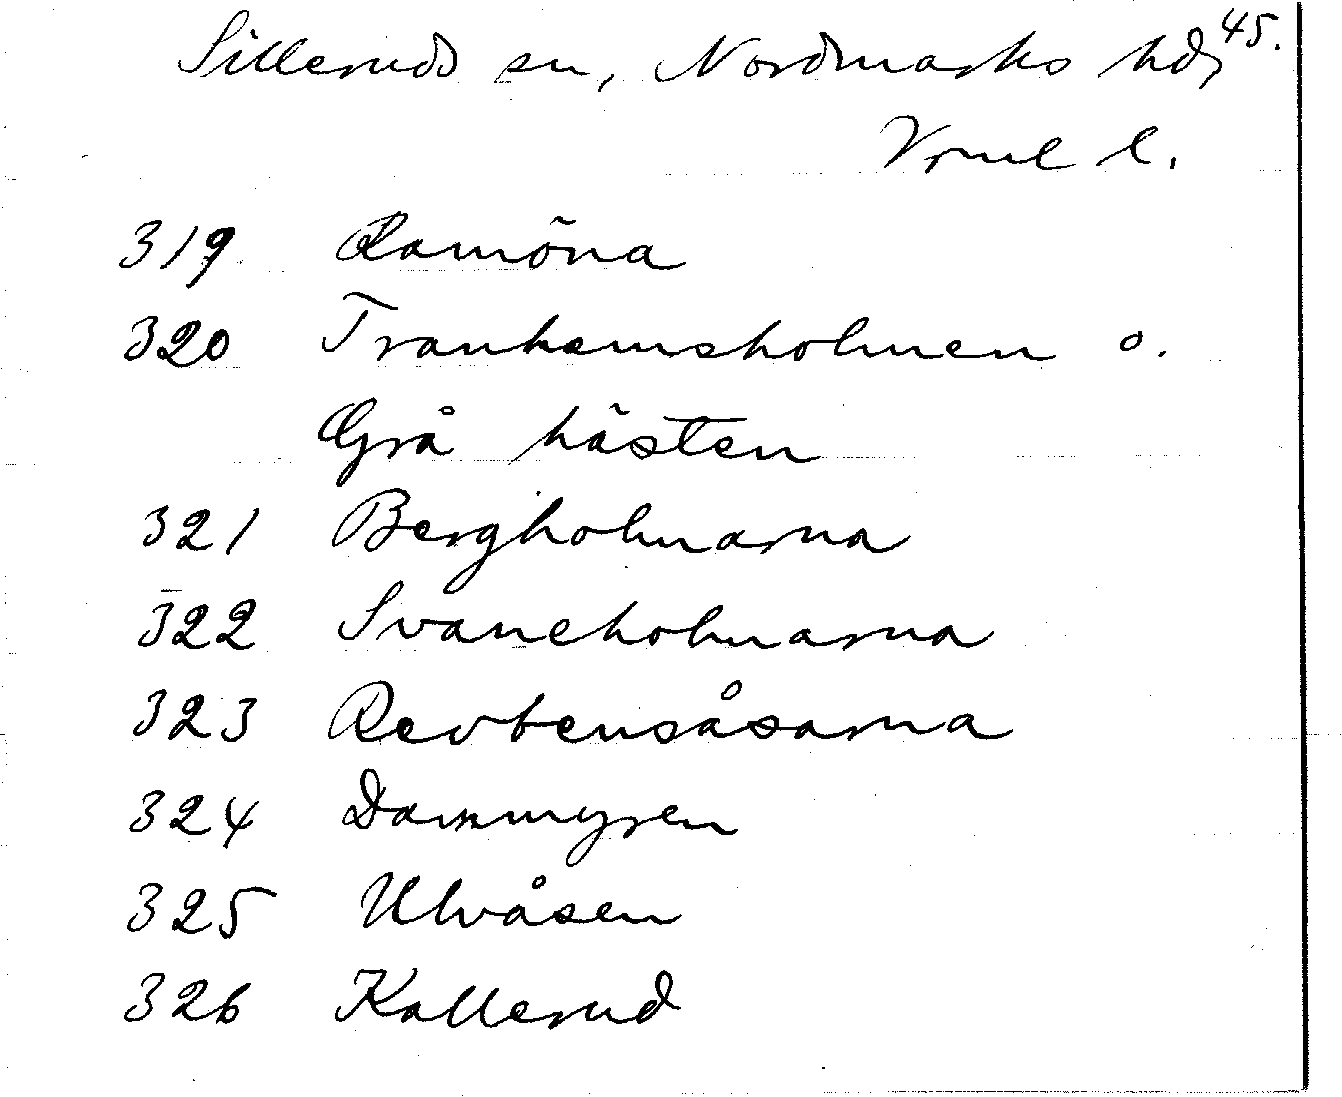 45.
Silleruds sn, Nordmarks hd,
Vrml l.
319 Ramöna
320 Trankemsholmen o.
Grå hästen
321 Bergholmarna
322 Svaneholmarna
323 Revbensåsarna
324 Dammyren
325 Ulvåsen
326 Kallerud